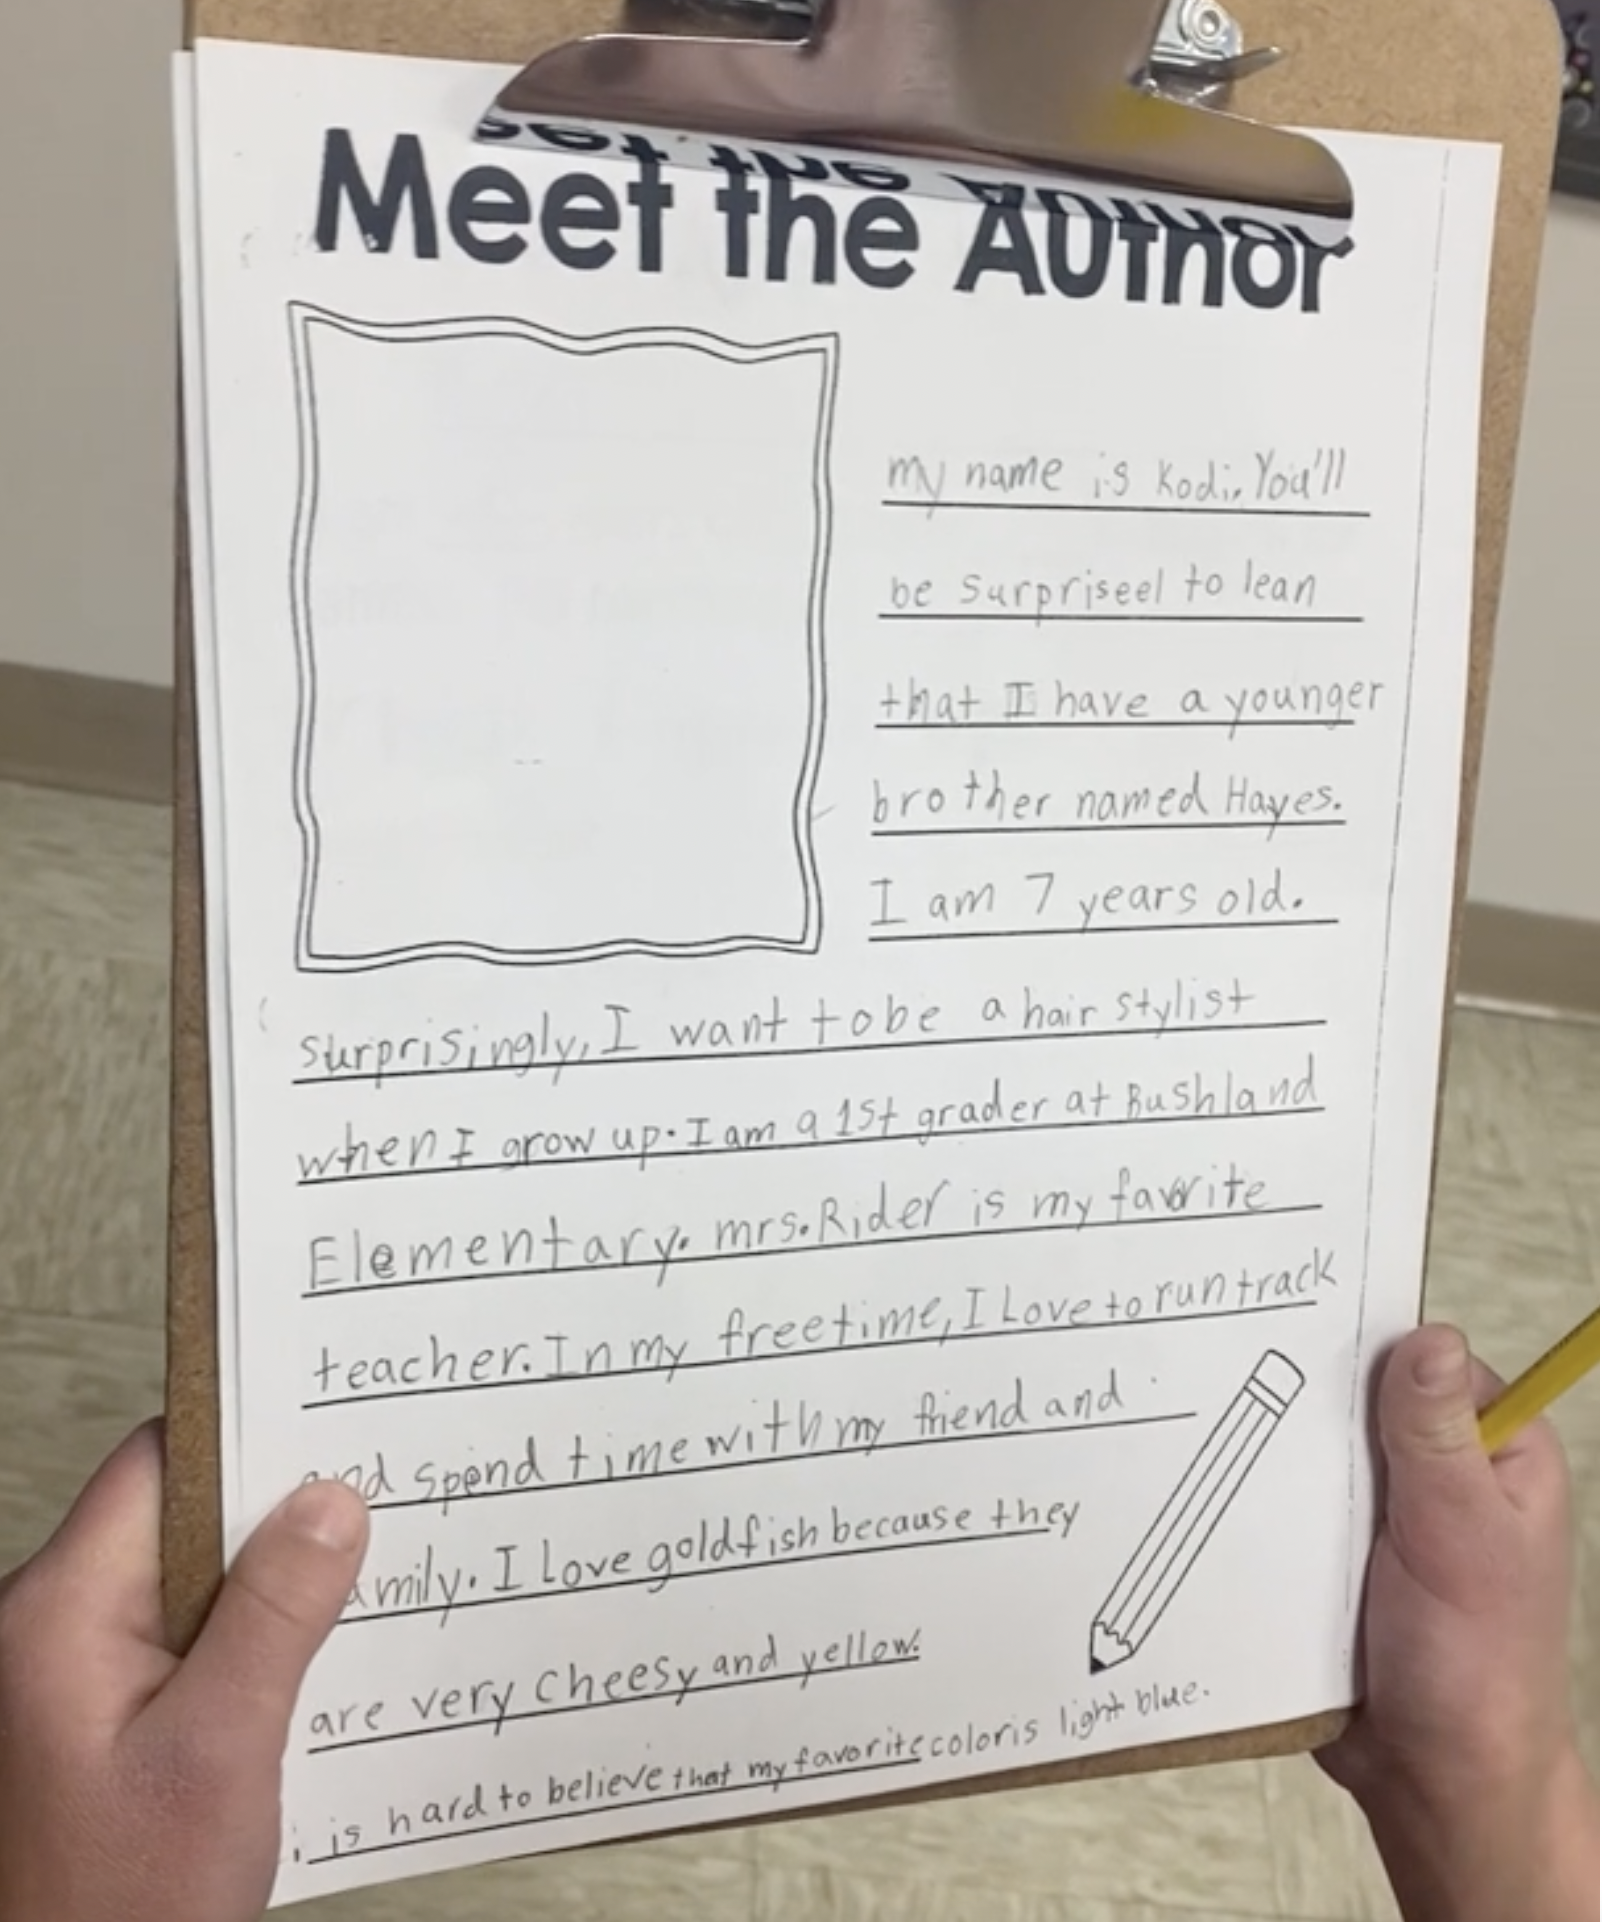 Meet the Author
my name is Kodi. You'll
be surprised to lean
that I have a younger
brother named Hayes.
I am 7 years old.
surprisingly, I want to be a hair stylist
when I grow up. I am a 1st grader at Bushland
Elementary. mrs. Rider is my favorite
teacher. In my free time, I Love to run track
and spend time with my friend and
amily. I Love goldfish because they
are very cheesy and yellow.
is hard to believe that my favorite color is light blue.